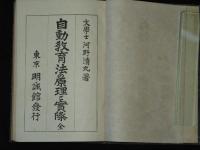 文學士 河野清丸著
自動教育法の原理と實際 全
東京 明誠館發行